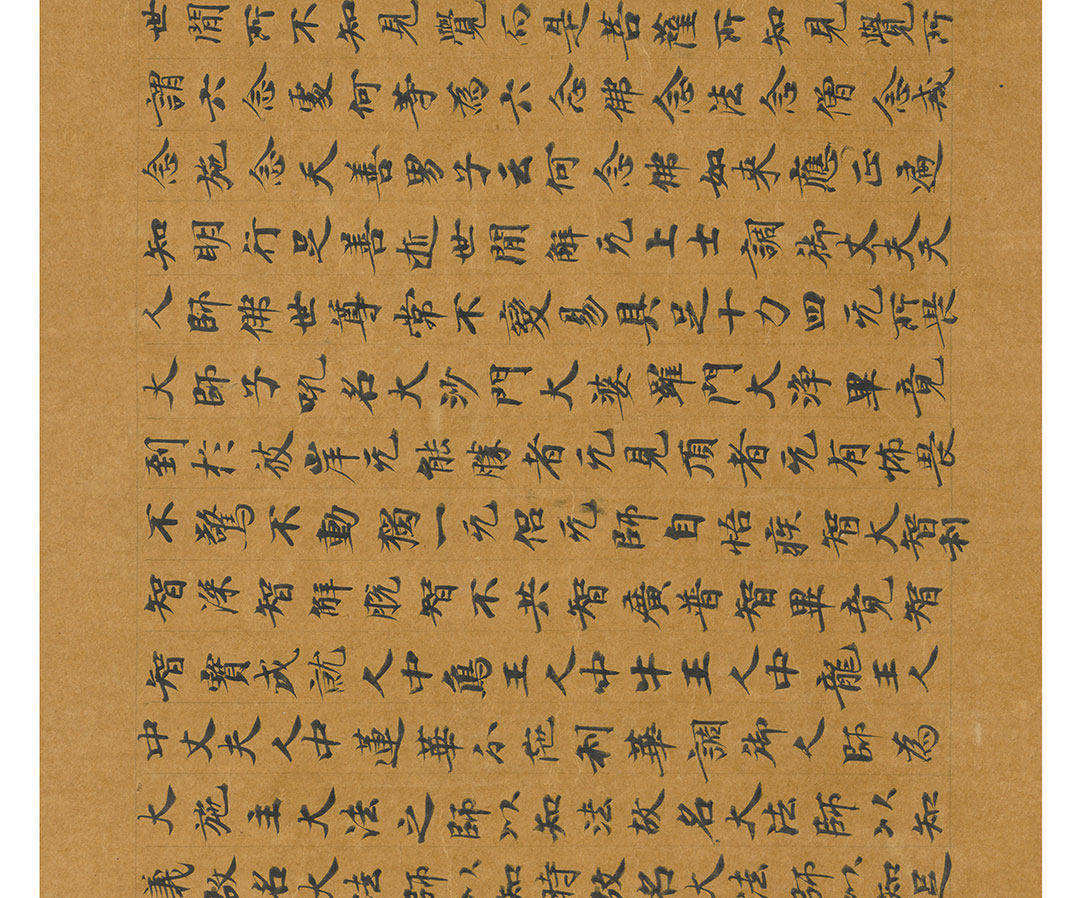 世間所不知見覺而是菩薩所知見覺所
謂六念處何等為六念佛念法念僧念戒
念施念天善男子云何念佛如來應正遍
知明行足善逝世間解无上士調御丈夫天
人師佛世尊常不變易具足十力四无所畏
大師子吼名大沙門大婆羅門大淨畢竟
到於彼岸无能勝者无見頂者无有怖畏
不驚不動獨一无侶无師自悟疾智大智利
智深智解脫智不共智廣普智畢竟智
智寶成就人中象王人中牛王人中龍王人
中丈夫人中蓮華分陀利華調御人師為
大施主大法之師以知法故名大法師以知
義故名大法師以知時故名大法師以知足